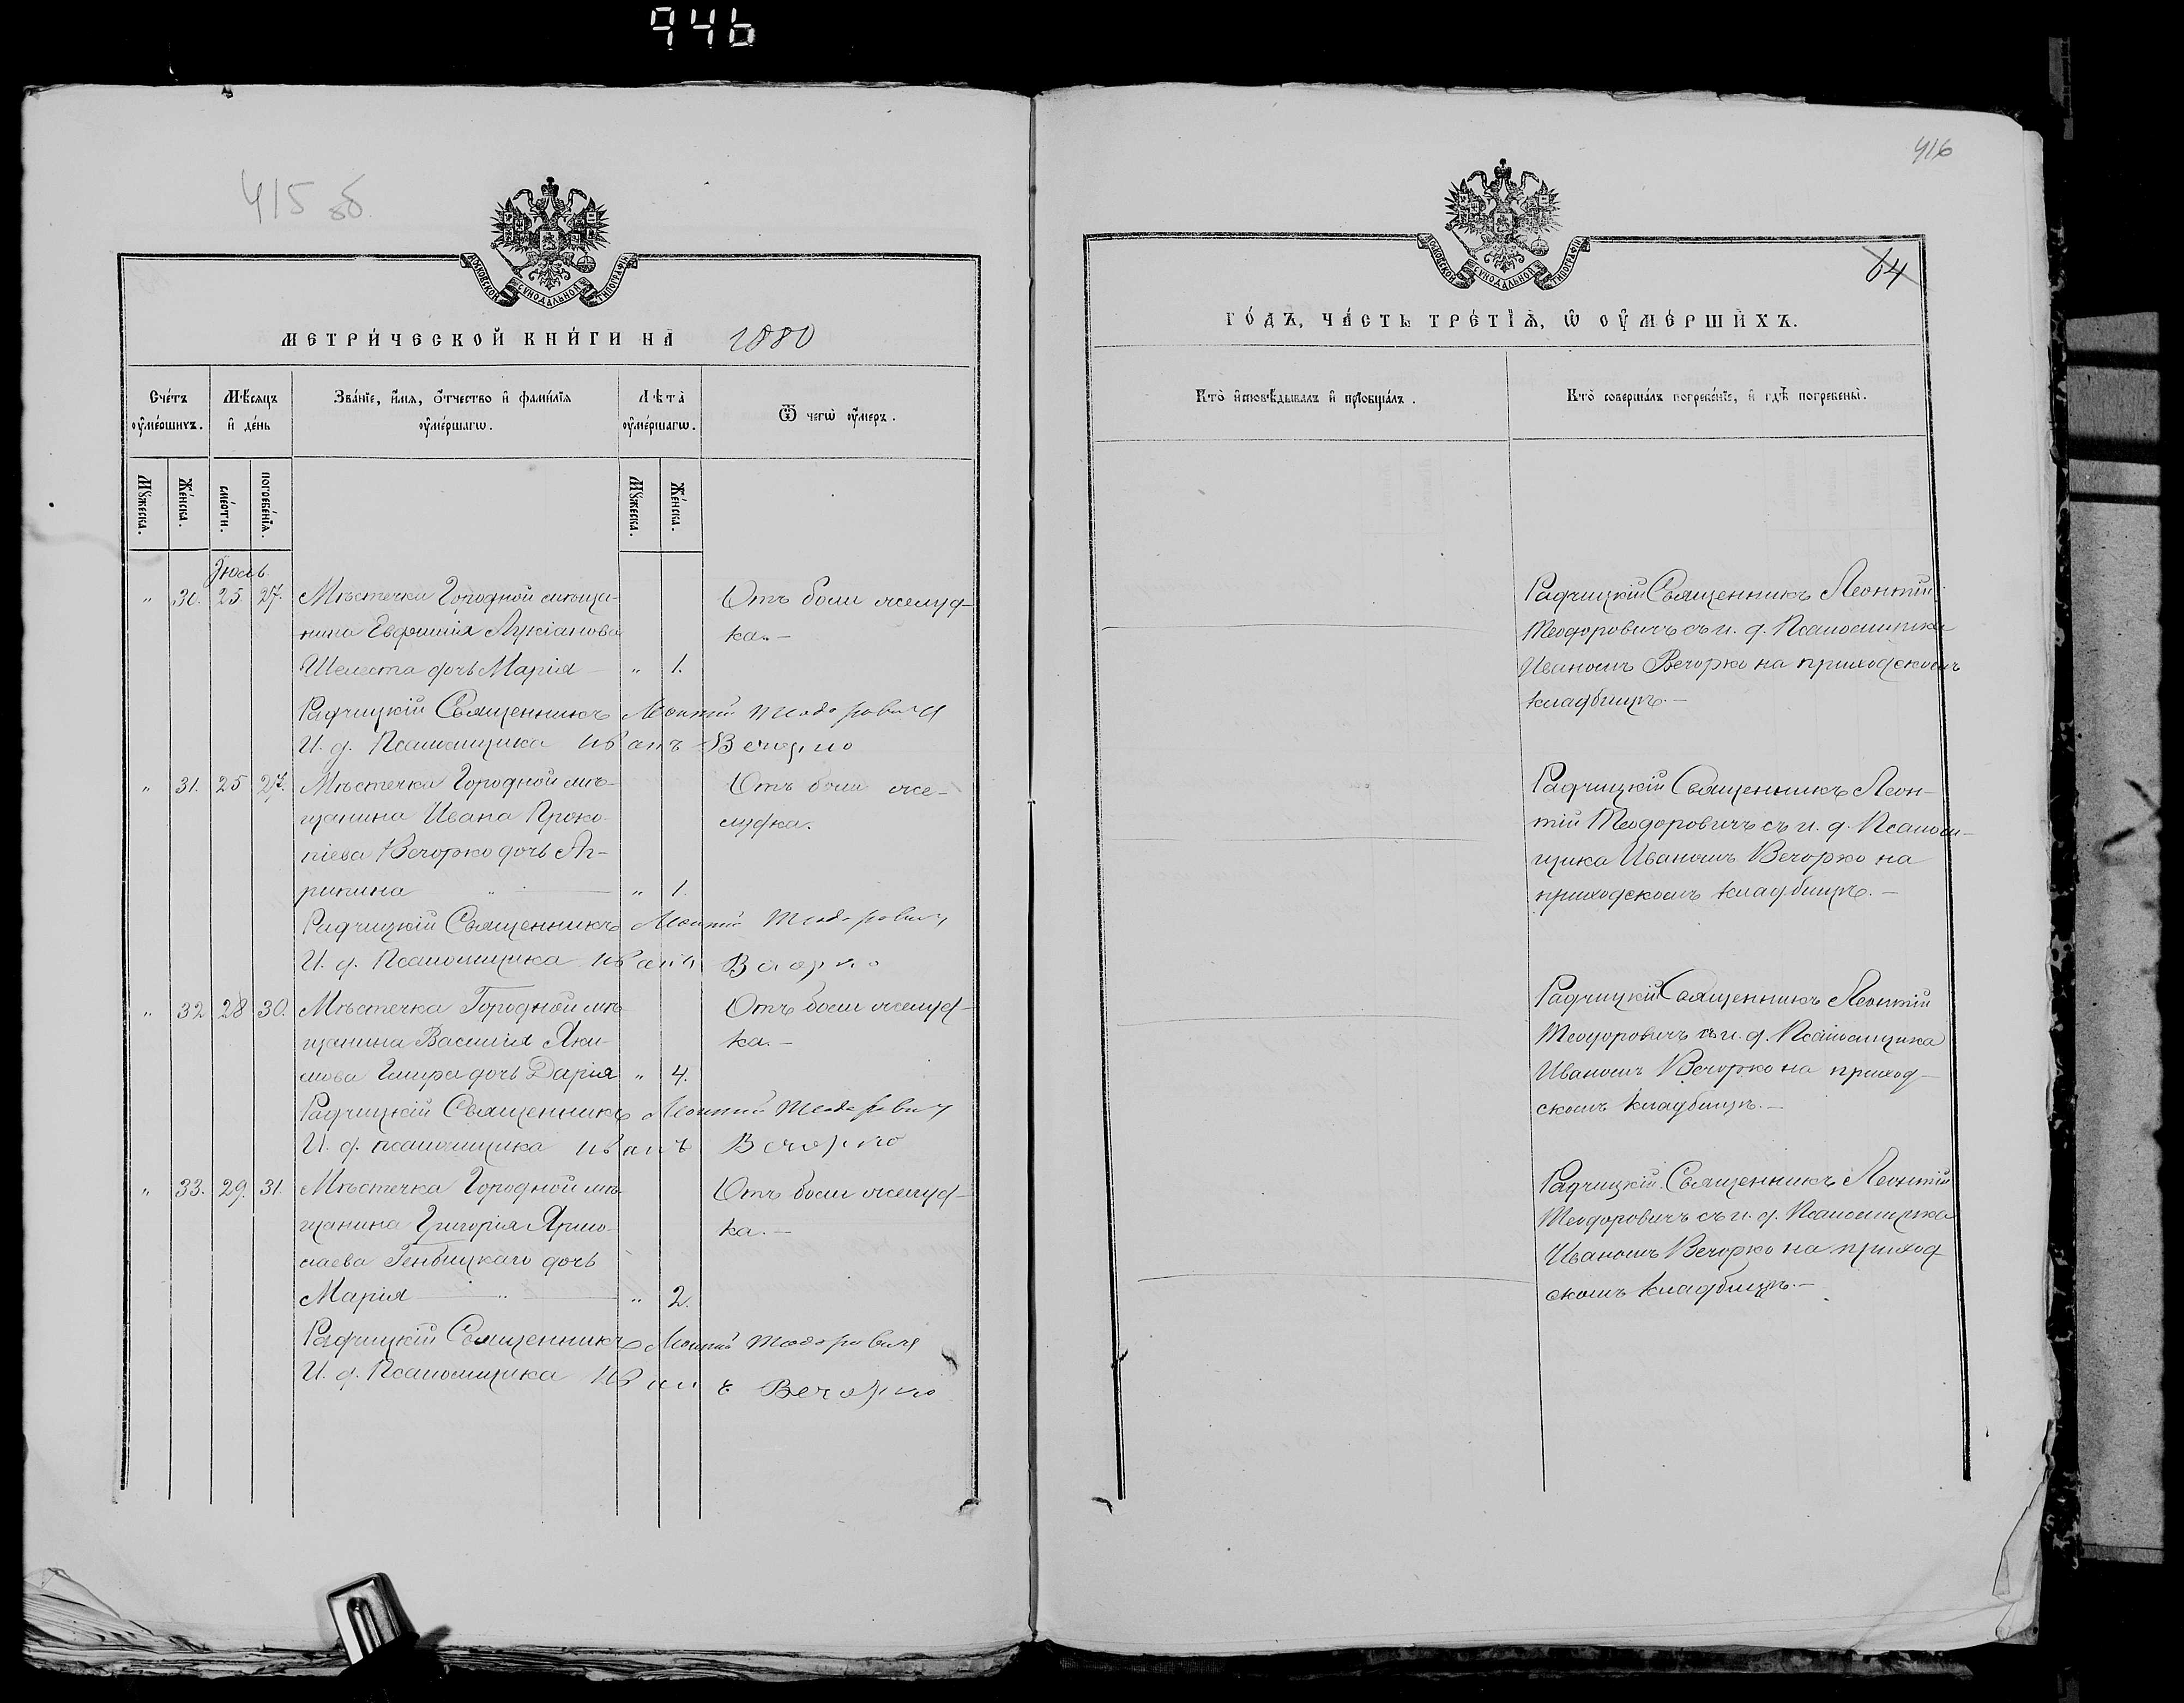 946
415 об
МОСКОВСКОЙ СѴНОДАЛЬНОЙ ТИПОГРАФІИ
МЕТРИ́ЧЕСКОЙ КНИ́ГИ НА 1880
Сче́тъ ᲂу҆ме́ршихъ.
Мѣ́сяцъ и҆ де́нь
Зва́нїе, и҆́мя, ѻ҆́тчество и҆ фами́лїя ᲂу҆ме́ршагѡ.
Лѣта̀ ᲂу҆ме́ршагѡ.
Ѿ чегѡ̀ ᲂу҆́меръ.
Мꙋ́жеска.
Же́нска.
сме́рти.
погребе́нїѧ.
Мꙋ́жеска.
Же́нска.
Іюль
" 30. 25. 27. Мѣстечка Городной мѣща- Отъ боли желуд-
нина Евфимія Лукіанова ка.-
Шелеста дочь Марія " 1.
Радчицкій Священникъ Леонтій Теодоровичъ
И. д. Псаломщика Иванъ Вечорко
" 31. 25 27. Мѣстечка Городной мѣ- Отъ боли же-
щанина Ивана Проко- лудка.
піева Вечорко дочь Аг-
рипина " 1.
Радчицкій Священникъ Леонтій Теодоровичъ
И. д. Псаломщика Иванъ Вечорко
" 32 28 30. Мѣстечка Городной мѣ- Отъ боли желуд-
щанина Василія Яки- ка.-
мова дочь Дарія " 4.
Радчицкій Священникъ Леонтій Теодоровичъ
И. д. псаломщика Иванъ Вечорко
" 33. 29. 31. Мѣстечка Городной мѣ- Отъ боли желуд-
щанина Григорія Ярмо- ка.-
лаева дочь
Марія " 2.
Радчицкій Священникъ Леонтій Теодоровичъ
И. д. Псаломщика Иванъ Вечорко
416
64
МОСКОВСКОЙ СѴНОДАЛЬНОЙ ТИПОГРАФІИ
ГО́ДЪ, ЧА́СТЬ ТРЕ́ТЇѦ, Ѡ҆ ОУ҆МЕ́РШИХЪ.
Кто̀ и҆сповѣ́дывалъ и҆ прїѡбща́лъ.
Кто̀ соверша́лъ погребе́нїе, и҆ гдѣ̀ погребены̀.
Радчицкій Священникъ Леонтій
Теодоровичъ съ и. д. Псаломщика
Иваномъ Вечорко на приходскомъ
кладбищѣ.-
Радчицкій Священникъ Леон-
тій Теодоровичъ съ и. д. Псалом-
щика Иваномъ Вечорко на
приходскомъ кладбищѣ.-
Радчицкій Священникъ Леонтій
Теодоровичъ съ и. д. Псаломщика
Иваномъ Вечорко на приход-
скомъ кладбищѣ.-
Радчицкій Священникъ Леонтій
Теодоровичъ съ и. д. Псаломщика
Иваномъ Вечорко на приход-
скомъ кладбищѣ.-